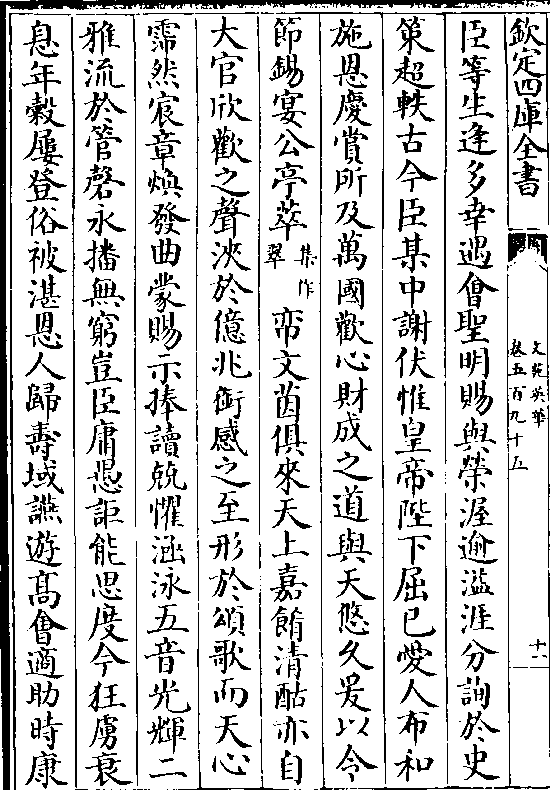 欽定四庫全書
文苑英華
卷五百九十五
十一
臣等生逢多幸遇會聖明賜與榮渥逾溢涯分詢於史
策超軼古今臣某中謝伏惟皇帝陛下屈已愛人布和
施恩慶賞所及萬國歡心財成之道與天悠久爰以令
節錫宴公亭萃集作翠帟文茵俱來天上嘉餚清酤亦自
大官欣歡之聲浹於億兆銜感之至形於頌歌而天心
霈然宸章煥發曲蒙賜示捧讀兢懼涵泳五音光輝二
雅流於管磬永播無窮豈臣庸愚詎能思度今狂虜衰
息年穀屢登俗被湛恩人歸壽域讌遊髙會適助時康